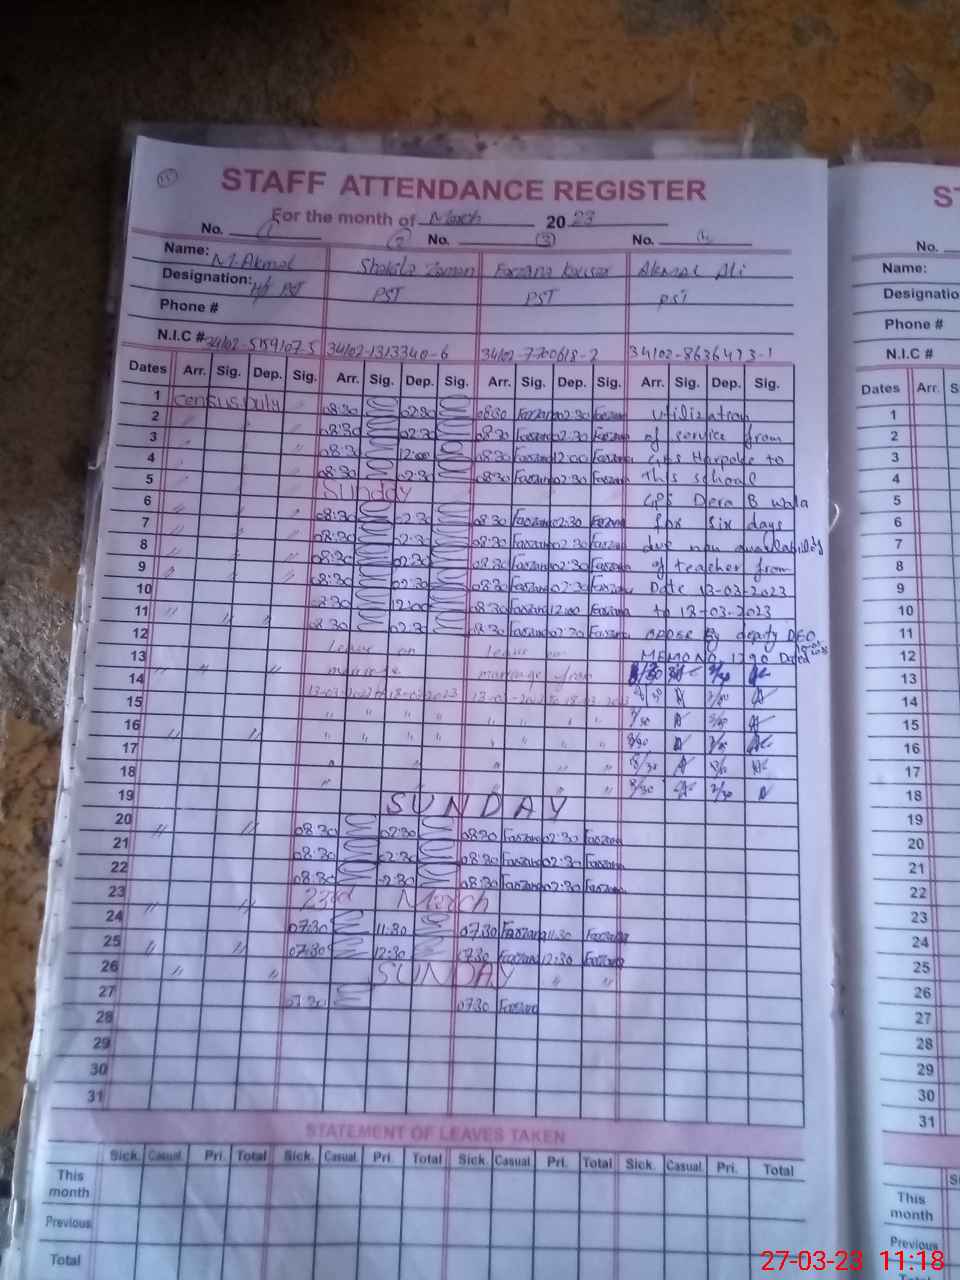 15
STAFF ATTENDANCE REGISTER
For the month of March 2023
No. 1 2 No. 3 No. 4
Name: M.Akmal Shakila Zaman Farzana kausar Akmal Ali
Designation: H/ PST PST PST PST
Phone #
N.I.C # 34102-5159107-5 34102-1313340-6 34102-7700618-2 34102-8636473-1
Dates Arr. Sig. Dep. Sig. Arr. Sig. Dep. Sig. Arr. Sig. Dep. Sig. Arr. Sig. Dep. Sig.
1 Census Duty 08:30 02:30 0830 Farzana 02:30 Farzana utilization
2 " " " 08:30 02:30 08:30 Farzana 02:30 Farzana of service from
3 " " " 08:30 12:00 08:30 Farzana 12:00 Farzana to
4 " " " 08:30 02:30 08:30 Farzana 02:30 Farzana this school
5 Sunday GPS Dera B wala
6 " " " 08:30 02:30 08:30 Farzana 02:30 Farzana for six days
7 " " " 08:30 02:30 08:30 Farzana 02:30 Farzana due non availability
8 " " " 08:30 02:30 08:30 Farzana 02:30 Farzana of teacher from
9 " " " 08:30 02:30 08:30 Farzana 02:30 Farzana Date 13-03-2023
10 " " 08:30 12:00 08:30 Farzana 12:00 Farzana to 18-03-2023
11 " " 08:30 02:30 08:30 Farzana 02:30 Farzana By deputy DEO
12 Leave on leave on MEMO NO 1290 Dated
13 " " " marriage marriage from 8/30 2/30
14 13-03-2023 to 18-03-2023 13-03-2023 to 18-03-2023 8/30 2/30
15 " " " " " " " " 8/30 2/30
16 " " " " " " " " " 8/30 2/30
17 " " " " " 8/30 2/30
18 " " " " 8/30 2/30
19 SUNDAY
20 " " 08:30 02:30 08:30 Farzana 02:30 Farzana
21 08:30 02:30 08:30 Farzana 02:30 Farzana
22 08:30 02:30 08:30 Farzana 02:30 Farzana
23 23rd March
24 " " 07:30 11:30 07:30 Farzana 11:30 Farzana
25 " " 07:30 12:30 0730 Farzana 12:30 Farzana
26 " " SUNDAY " "
27 07:30 0730 Farzana
28
29
30
31
STATEMENT OF LEAVES TAKEN
Sick. Casual. Pri. Total Sick. Casual. Pri. Total Sick. Casual. Pri. Total Sick. Casual. Pri. Total
This month
Previous
Total
ST
No.
Name:
Designatio
Phone #
N.I.C #
Dates Arr. S
1
2
3
4
5
6
7
8
9
10
11
12
13
14
15
16
17
18
19
20
21
22
23
24
25
26
27
28
29
30
31
This month
Previous
27-03-23 11:18